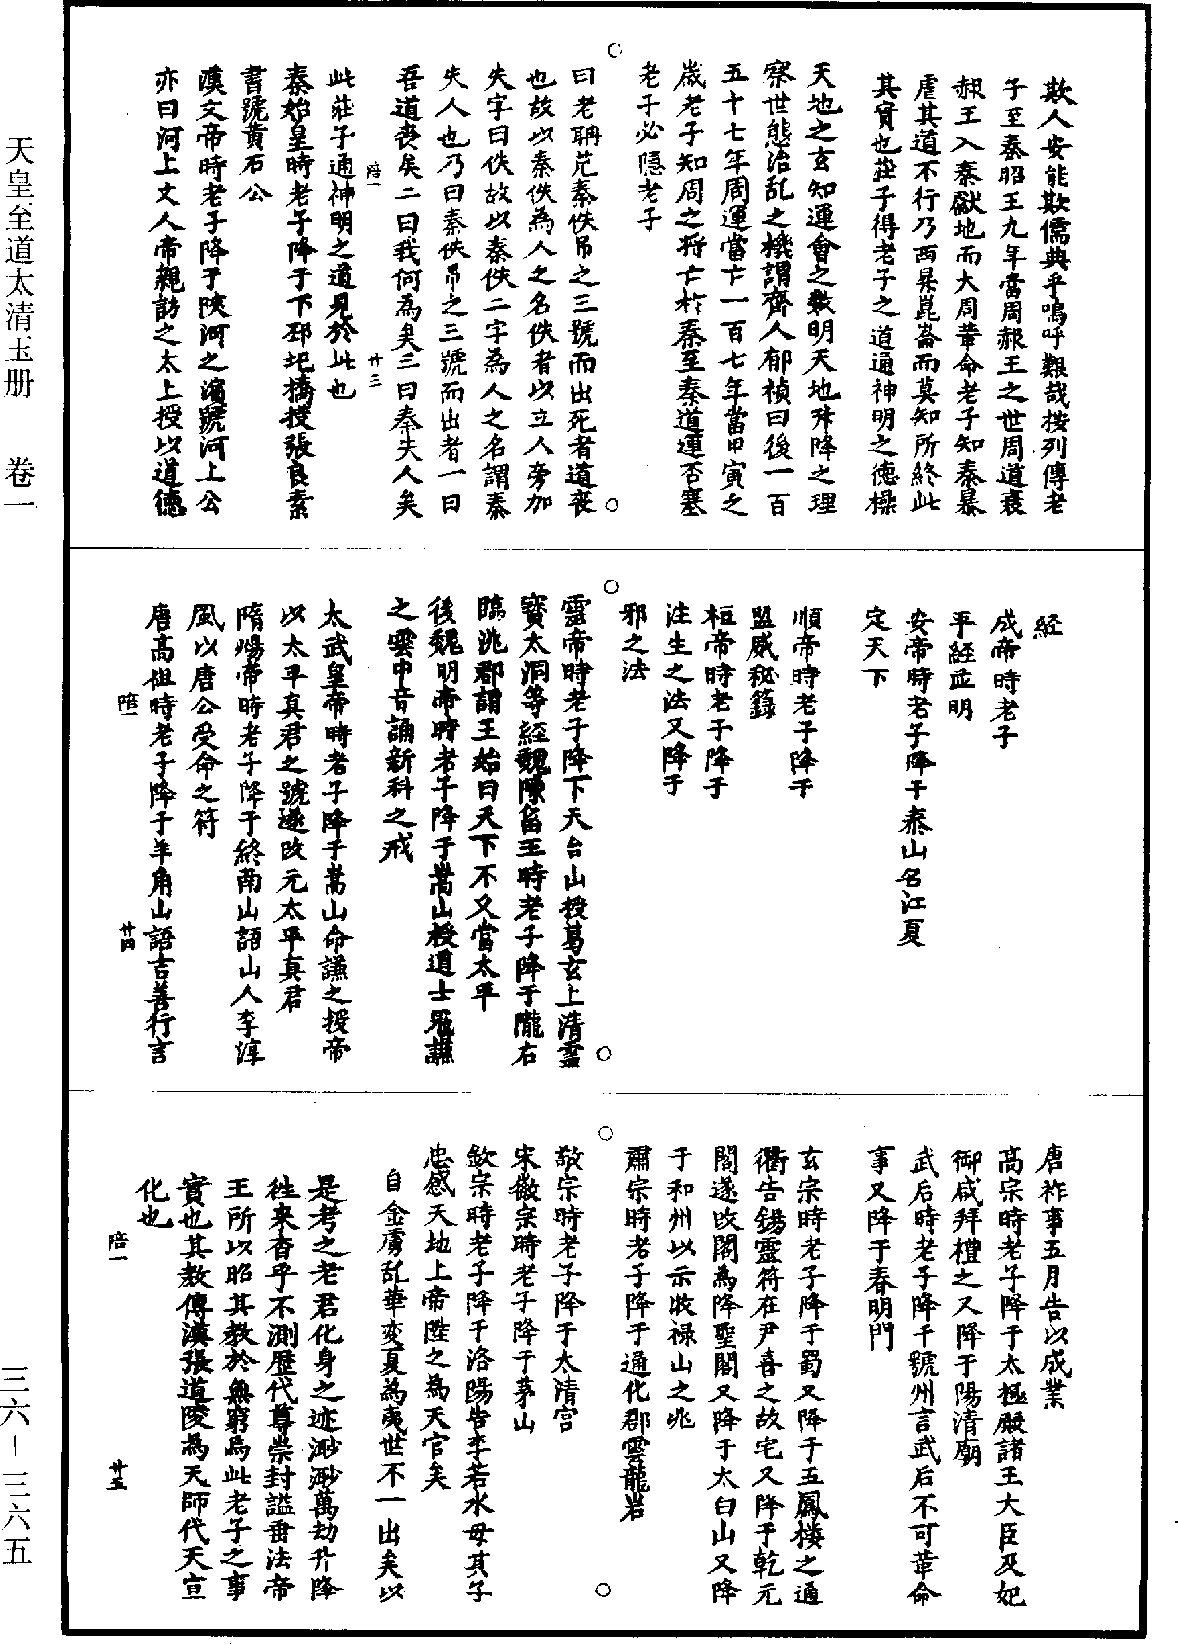 天皇至道太清玉册 卷一
三六—三六五
欺人安能欺儒典乎嗚呼艱哉按列傳老
子至秦昭王九年當周赧王之世周道衰
赧王入秦獻地而大周革命老子知秦暴
虐其道不行乃西昇崑崙而莫知所終此
其實也莊子得老子之道通神明之德操
天地之玄知運會之數明天地升降之理
察世態治乱之機謂齊人郁禎曰後一百
五十七年周運當亡一百七年當甲寅之
歲老子知周之將亡於秦至秦道運否塞
老子必隱老子
曰老聃死秦佚吊之三號而出死者道喪
也故以秦佚為人之名佚者以立人旁加
失字曰佚故以秦佚二字為人之名謂秦
失人也乃曰秦佚吊之三號而出者一曰
吾道喪矣二曰我何為矣三曰秦失人矣
陪一 廿三
此莊子通神明之道見於此也
秦始皇時老子降于下邳圯橋授張良素
書號黃石公
漢文帝時老子降于陝河之濱號河上公
亦曰河上丈人帝親訪之太上授以道德
經
成帝時老子
平經正明
安帝時老子降于泰山名江夏
定天下
順帝時老子降于
盟威秘錄
桓帝時老子降于
注生之法又降于
邪之法
靈帝時老子降下天台山授葛玄上清靈
寶太洞等經魏陳留王時老子降于隴右
臨洮郡謂王始曰天下不又當太平
後魏明帝時老子降于嵩山授道士冦謙
之雲中音誦新科之戒
太武皇帝時老子降于嵩山命謙之授帝
以太平真君之號遂改元太平真君
隋煬帝時老子降于終南山語山人李淳
風以唐公受命之符
唐高祖時老子降于羊角山語吉善行言
陪一 廿四
唐祚事五月告以成業
高宗時老子降于太極殿諸王大臣及妃
御咸拜禮之又降于陽清廟
武后時老子降于號州言武后不可革命
事又降于春明門
玄宗時老子降于蜀又降于五鳳樓之通
衢告錫靈符在尹喜之故宅又降于乾元
閣遂改閣為降聖閣又降于太白山又降
于和州以示收祿山之兆
肅宗時老子降于通化郡雲龍岩
敬宗時老子降于太清宫
宋徽宗時老子降于茅山
欽宗時老子降于洛陽告李若水毋其子
忠感天地上帝陞之為天官矣
自金虜乱華变夏為夷世不一出矣以
是考之老君化身之迹渺渺萬劫升降
徃来杳乎不測歷代尊崇封謚垂法帝
王所以昭其教於無窮焉此老子之事
實也其教傳漢張道陵為天師代天宣
化也
陪一 廿五